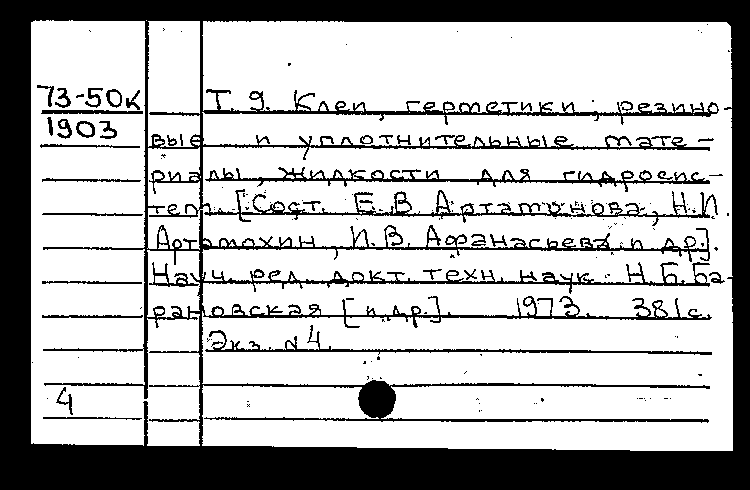 73-50к Т. 9. Клеи, герметики, резино-
1903 вые и уплотнительные мате-
риалы, жидкости для гидросис-
тем. [Сост. Е.В. Артамонова, Н.П.
Артамохин, И.В. Афанасьева и др].
Науч. ред. докт. техн. наук Н.Б.Ба-
рановская [и др.]. 1973. 381с.
Экз. №4.
4